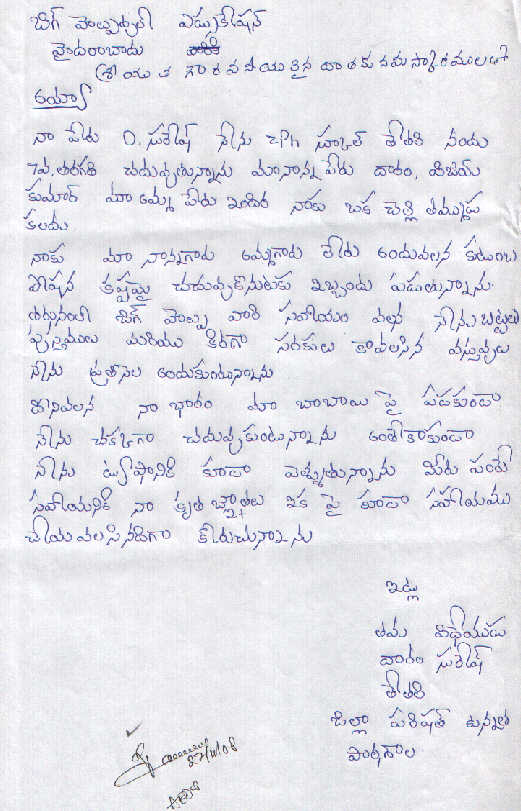 బిగ్ హెల్ప్ ఎడ్యుకేషన్
హైదరాబాదు
శ్రీయుత గౌరవనీయులైన దాతకు నమస్కారములతో
అయ్యా
నా పేరు D. సురేష్ నేను ZPH స్కూల్ తేతలి నందు
7వ. తరగతి చదువుతున్నాను మా నాన్న పేరు దారం, విజయ్
కుమార్ మా అమ్మ పేరు ఇందిర నాకు ఒక చెల్లి తమ్ముడు
కలదు
నాకు మా నాన్నగారు అమ్మగారు లేరు అందువలన కుటుంబ
పోషన కష్టమై చదువుకొనుటకు ఇబ్బందు పడుతున్నాను.
బిగ్ హెల్ప్ వారి సహాయం వల్ల నేను బట్టలు
పుస్తకములు మరియు కిరాణా సరకులు కావలసిన వస్తువులు
నేను ప్రతినెల అందుకుంటున్నాను
ఇందువలన నా భారం మా బాబాయి పై పడకుండా
నేను చక్కగా చదువుకుంటున్నాను అంతేకాకుండా
నేను ట్యూషానికి కూడా వెళ్ళుతున్నాను మీరు చేసే
సహాయనికి నా కృతజ్ఞతలు ఇక పై కూడా సహాయము
చేయవలసినదిగా కోరుచున్నాను
ఇట్లు
తమ విధేయుడు
దారం సురేష్
తేతలి
జిల్లా పరిషత్ ఉన్నత
పాఠశాల